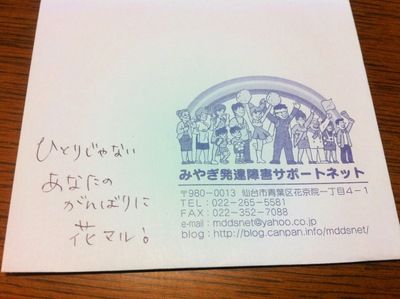 ひとりじゃない
あなたの
がんばりに
花マル!
みやぎ発達障害サポートネット
〒980-0013 仙台市青葉区花京院一丁目4-1
TEL:022-265-5581
FAX:022-352-7088
e-mail:mddsnet@yahoo.co.jp
blog:http://blog.canpan.info/mddsnet/